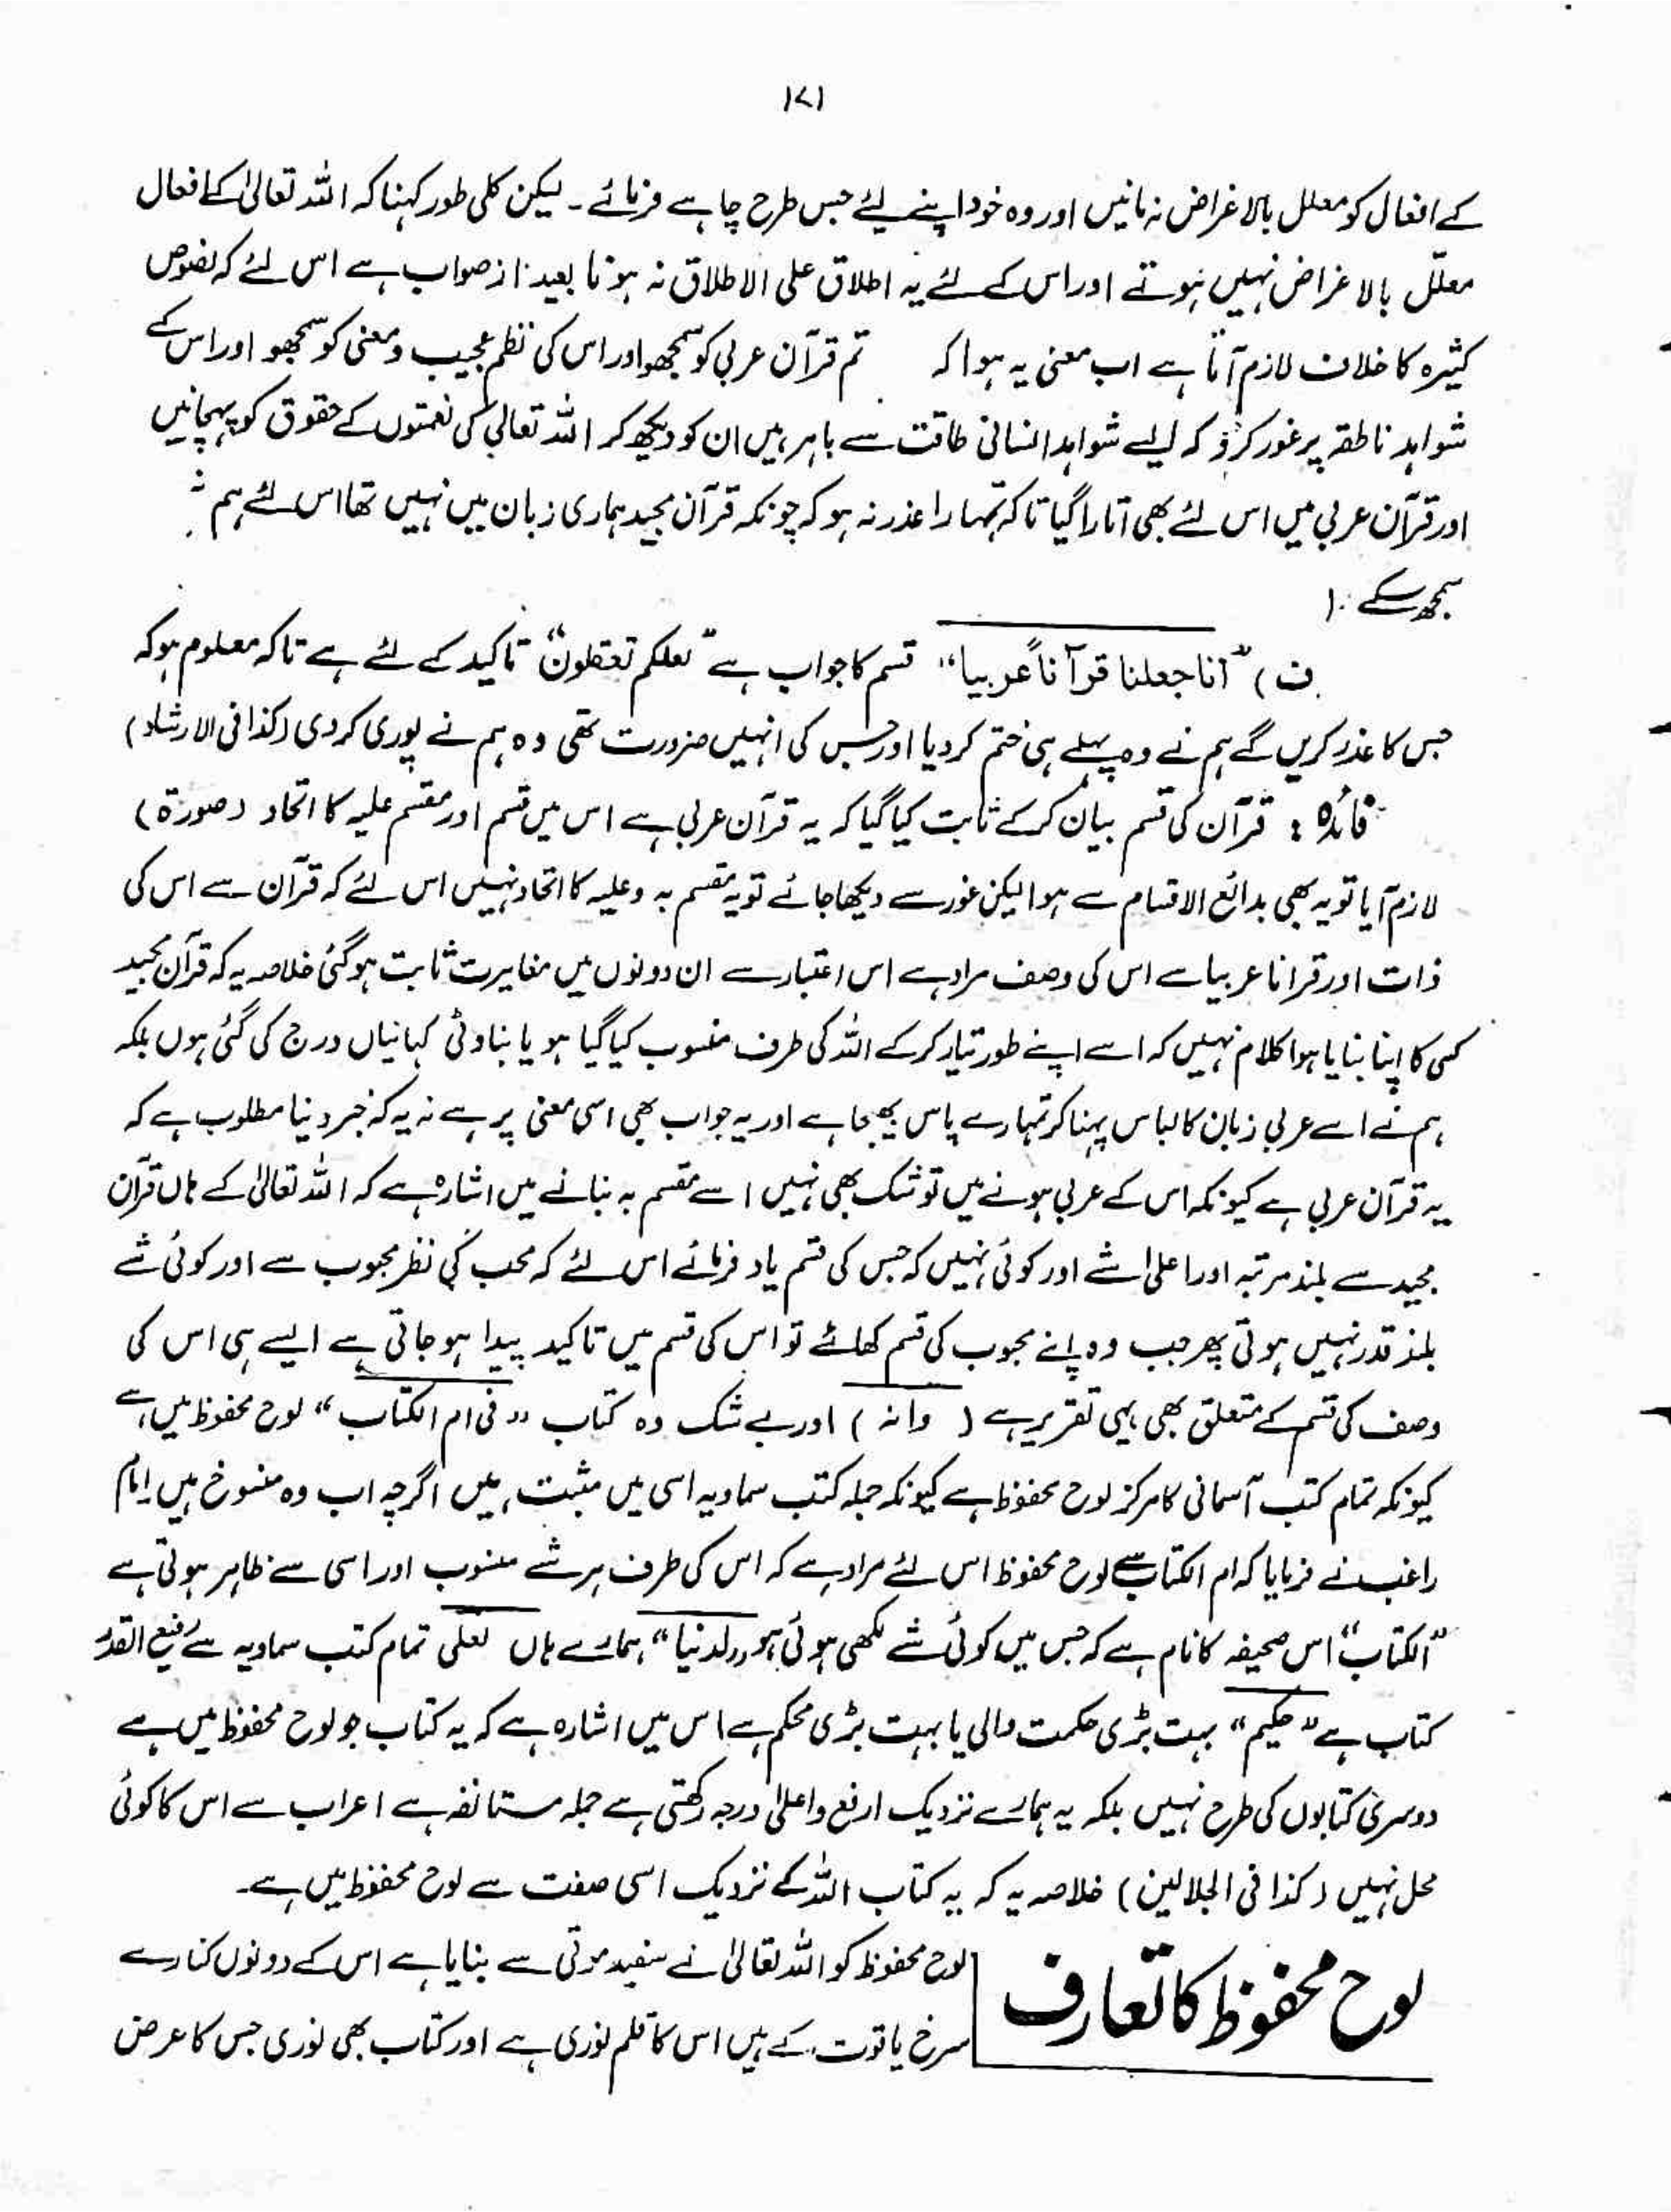 ۱۷۱
کے افعال کو معلل بالاغراض نہ مانیں اور وہ خود اپنے لئے جس طرح چاہے فرمائے۔ لیکن کلی طور کہنا کہ اللہ تعالیٰ کے افعال
معلّل بالاغراض نہیں ہوتے اور اس کے لئے یہ اطلاق علی الاطلاق نہ ہونا بعید از صواب ہے اس لئے کہ نصوص
کثیرہ کا خلاف لازم آتا ہے اب معنی یہ ہوا کہ تم قرآن عربی کو سمجھو اور اس کی نظم عجیب و معنی کو سمجھو اور اس کے
شواہد ناطقہ پر غور کرو کہ ایسے شواہد انسانی طاقت سے باہر ہیں ان کو دیکھ کر اللہ تعالیٰ کی نعمتوں کے حقوق کو پہچانیں
اور قرآن عربی میں اس لئے بھی اتارا گیا تاکہ تمہارا عذر نہ ہو کہ چونکہ قرآن مجید ہماری زبان میں نہیں تھا اس لئے ہم نہ
سمجھ سکے۔
ف) "انا جعلنا قرآناً عربیا" قسم کا جواب ہے "لعلکم تعقلون" تاکید کے لئے ہے تاکہ معلوم ہو کہ
جس کا عذر کریں گے ہم نے وہ پہلے ہی ختم کر دیا اور جس کی انہیں ضرورت تھی وہ ہم نے پوری کر دی (کذا فی الارشاد)
فائدہ : قرآن کی قسم بیان کر کے ثابت کیا گیا کہ یہ قرآن عربی ہے اس میں قسم اور مقسم علیہ کا اتحاد (صورۃ)
لازم آیا تو یہ بھی بدائع الاقسام سے ہوا لیکن غور سے دیکھا جائے تو یہ مقسم بہ و علیہ کا اتحاد نہیں اس لئے کہ قرآن سے اس کی
ذات اور قرانا عربیا سے اس کی وصف مراد ہے اس اعتبار سے ان دونوں میں مغایرت ثابت ہو گئی خلاصہ یہ کہ قرآن مجید
کسی کا اپنا بنایا ہوا کلام نہیں کہ اسے اپنے طور تیار کر کے اللہ کی طرف منسوب کیا گیا ہو یا بناوٹی کہانیاں درج کی گئی ہوں بلکہ
ہم نے اسے عربی زبان کا لباس پہنا کر تمہارے پاس بھیجا ہے اور یہ جواب بھی اسی معنی پر ہے نہ یہ کہ خبر دینا مطلوب ہے کہ
یہ قرآن عربی ہے کیونکہ اس کے عربی ہونے میں تو شک بھی نہیں اسے مقسم بہ بنانے میں اشارہ ہے کہ اللہ تعالیٰ کے ہاں قرآن
مجید سے بلند مرتبہ اور اعلیٰ شے اور کوئی نہیں کہ جس کی قسم یاد فرمائے اس لئے کہ محب کی نظر محبوب سے اور کوئی شے
بلند قدر نہیں ہوتی پھر جب وہ اپنے محبوب کی قسم کھائے تو اس کی قسم میں تاکید پیدا ہو جاتی ہے ایسے ہی اس کی
وصف کی قسم کے متعلق بھی یہی تقریر ہے (وانہ) اور بے شک وہ کتاب "فی ام الکتاب" لوح محفوظ میں ہے
کیونکہ تمام کتب آسمانی کا مرکز لوح محفوظ ہے کیونکہ جملہ کتب سماویہ اسی میں مثبت ہیں اگرچہ اب وہ منسوخ ہیں امام
راغب نے فرمایا کہ ام الکتاب سے لوح محفوظ اس لئے مراد ہے کہ اس کی طرف ہر شے منسوب اور اسی سے ظاہر ہوتی ہے
"الکتاب" اس صحیفہ کا نام ہے کہ جس میں کوئی شے لکھی ہوئی ہو "لدنیا" ہمارے ہاں لعلی تمام کتب سماویہ سے رفیع القدر
کتاب ہے "حکیم" بہت بڑی حکمت والی یا بہت بڑی محکم ہے اس میں اشارہ ہے کہ یہ کتاب جو لوح محفوظ میں ہے
دوسری کتابوں کی طرح نہیں بلکہ یہ ہمارے نزدیک ارفع و اعلیٰ درجہ رکھتی ہے جملہ مستانفہ ہے اعراب سے اس کا کوئی
محل نہیں (کذا فی الجلالین) خلاصہ یہ کہ یہ کتاب اللہ کے نزدیک اسی صفت سے لوح محفوظ میں ہے۔
لوح محفوظ کا تعارف
لوح محفوظ کو اللہ تعالیٰ نے سفید موتی سے بنایا ہے اس کے دونوں کنارے
سرخ یاقوت کے ہیں اس کا قلم نوری ہے اور کتاب بھی نوری جس کا عرض